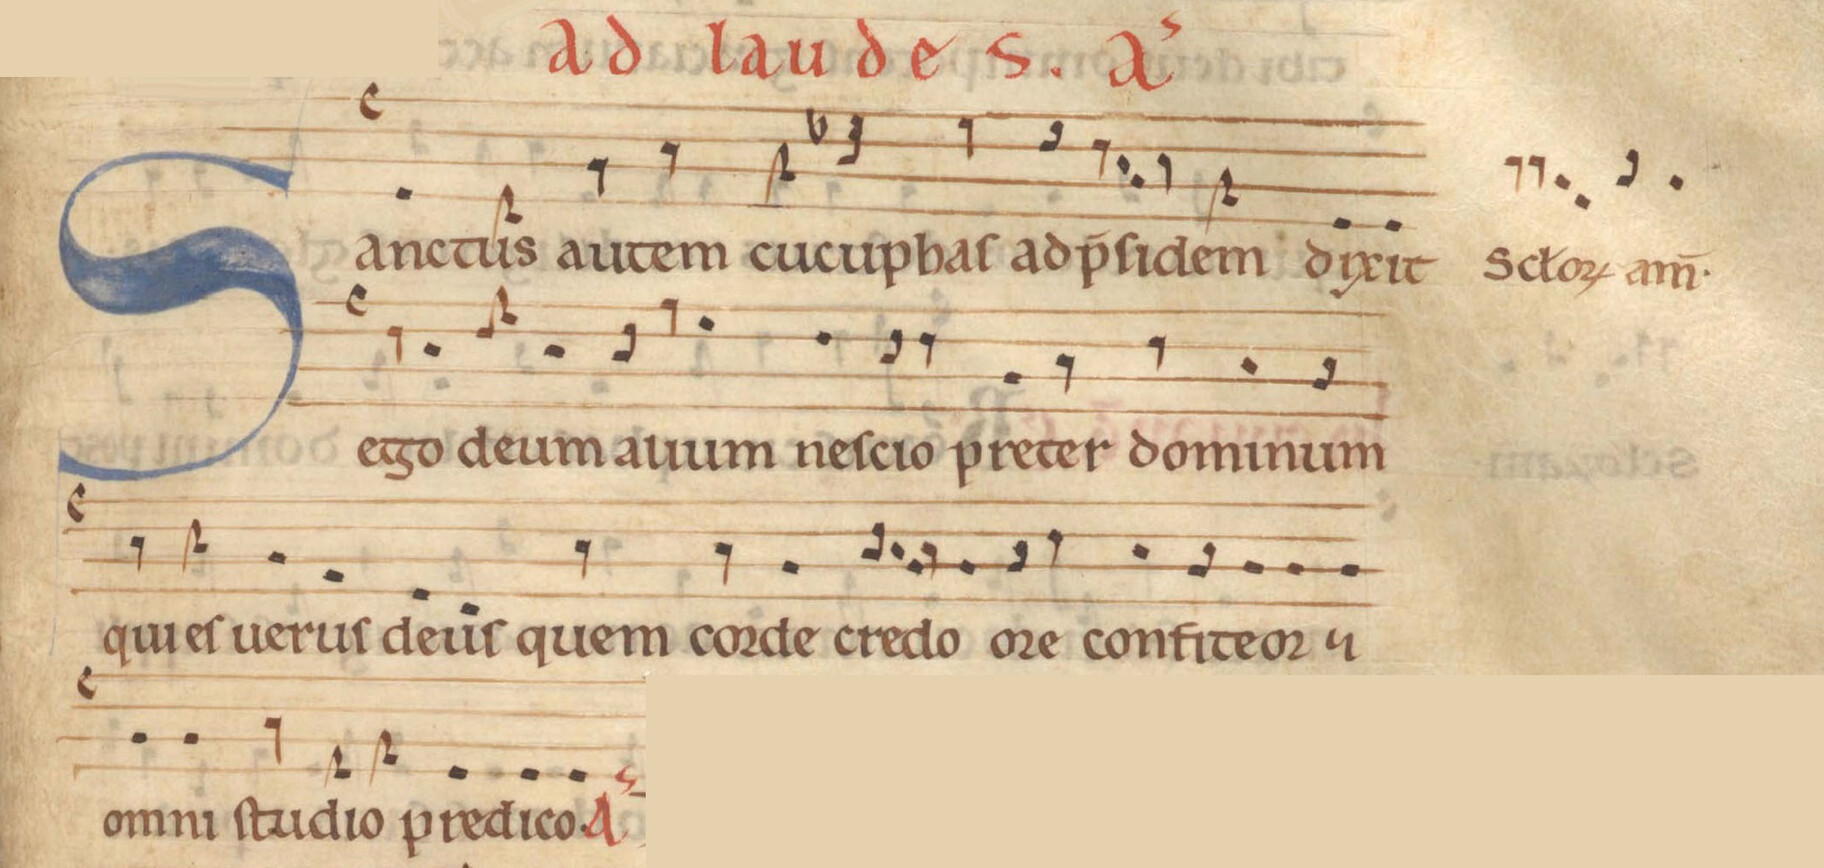 ad laudes. a᷒
Sanctus autem cucuphas ad p̄sidem dixit Sctoꝝ am̄.
ego deum auum nescio preter dominum
qui es uerus deus quem corde credo ore confiteor ⁊
omni studio predico. A